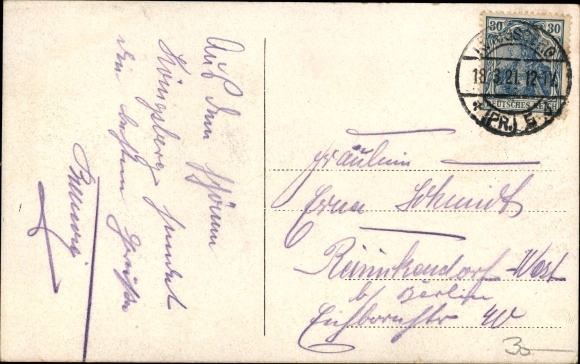 Auf dem schönen
Königsberg sendet
die besten Grüße
30 30
DEUTSCHES REICH
KÖNIGSBERG
18.3.21. 12-1
* (PR.) 5
Fräulein
Erna Schmidt
Reinickendorf-West
b/ Berlin
Eichbornstr 40
30